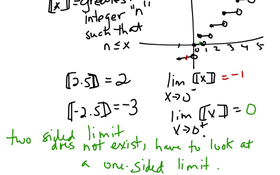 ⟦x⟧ = greatest
integer "n"
such that
n ≤ x
1 0 1 2 3 4 5
⟦2.5⟧ = 2
lim ⟦x⟧ = -1
x→0⁻
⟦-2.5⟧ = -3
lim ⟦x⟧ = 0
x→0⁺
two sided limit
does not exist, have to look at
a one-sided limit.